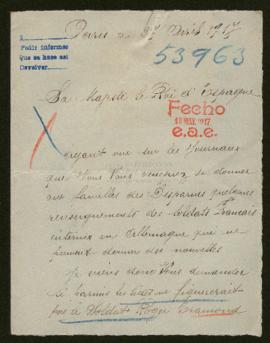 Paris le 27 Avril 1917
Pedir informes
Que se hace así
Devolver
53963
Sa Majesté le Roi d'Espagne
Fecho
18 MAY. 1917
e.a.e.
ayant vue sur les Journaux
que Vous Vous donner
aux familles des quelques
renseignements des soldats Français
internés en Allemagne qui ne
peuvent donner des nouvelles
Je viens donc Vous demander
si parmis les listes ne figurerait
pas le Soldat Roger